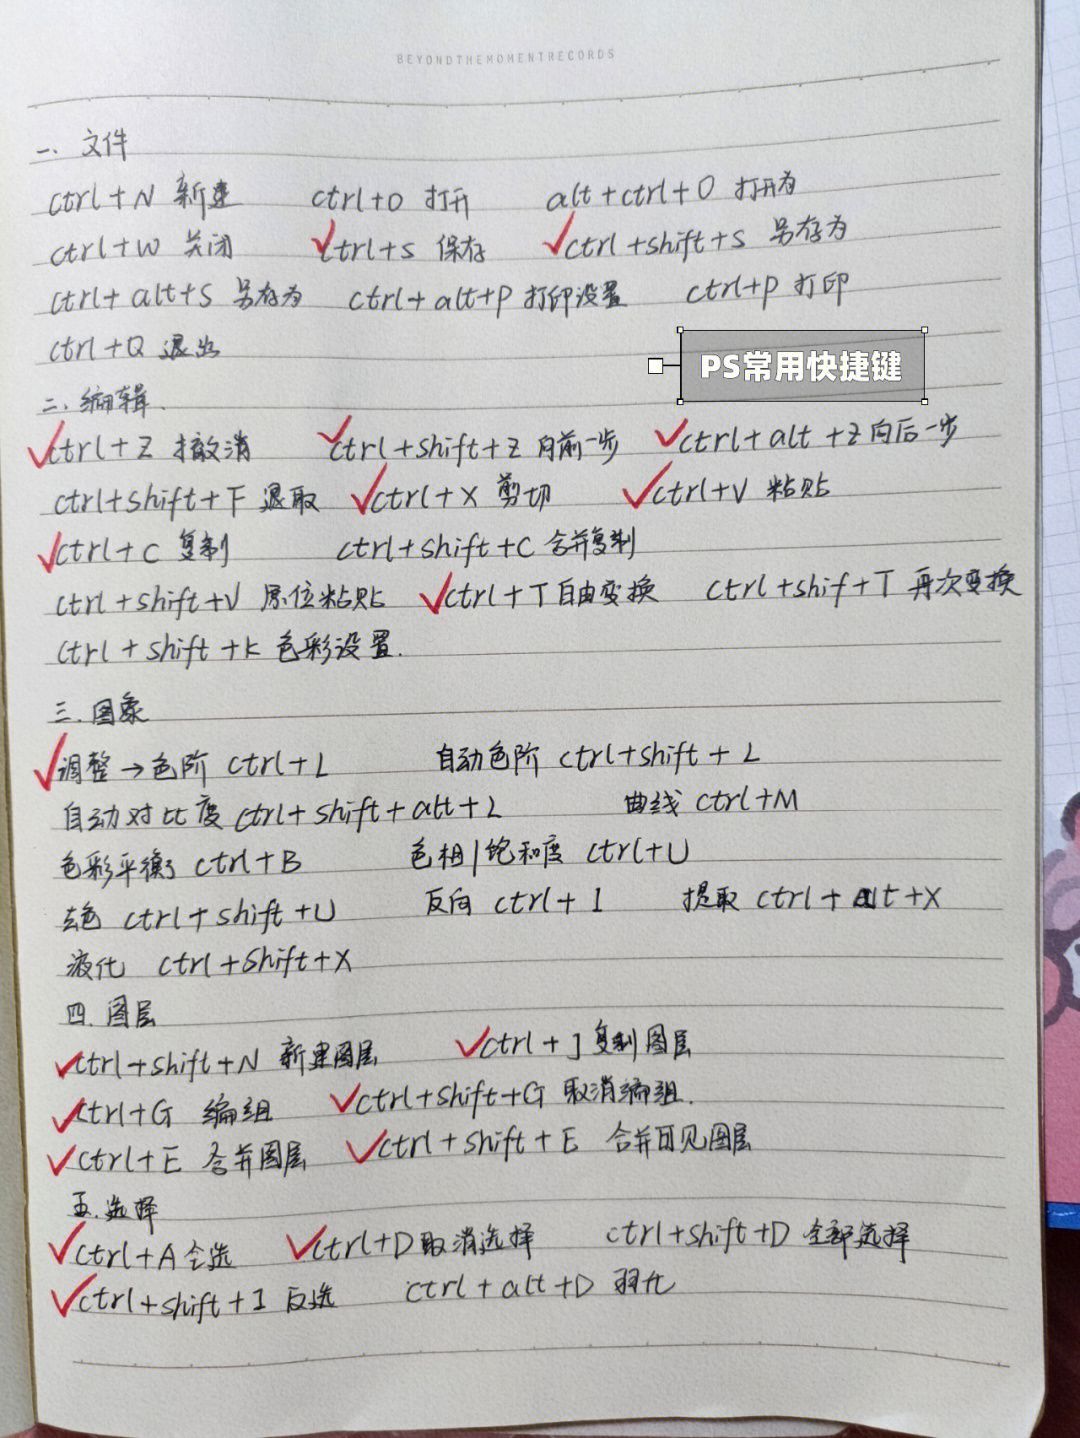 BEYONDTHEMOMENTRECORDS
一、文件
ctrl+N 新建 ctrl+O 打开 alt+ctrl+O 打开为
ctrl+W 关闭 ctrl+S 保存 ctrl+shift+S 另存为
ctrl+alt+S 另存为 ctrl+alt+P 打印设置 ctrl+P 打印
ctrl+Q 退出
PS常用快捷键
二、编辑.
ctrl+Z 撤消 ctrl+shift+Z 向前一步 ctrl+alt+Z 向后一步
ctrl+shift+F 退取 ctrl+X 剪切 ctrl+V 粘贴
ctrl+C 复制 ctrl+shift+C 合并复制
ctrl+shift+V 原位粘贴 ctrl+T 自由变换 ctrl+shif+T 再次变换
ctrl+shift+K 色彩设置.
三.图象
调整→色阶 ctrl+L 自动色阶 ctrl+shift+L
自动对比度 ctrl+shift+alt+L 曲线 ctrl+M
色彩平衡 ctrl+B 色相|饱和度 ctrl+U
去色 ctrl+shift+U 反向 ctrl+I 提取 ctrl+alt+X
液化 ctrl+shift+X
四.图层
ctrl+shift+N 新建图层 ctrl+J 复制图层
ctrl+G 编组 ctrl+shift+G 取消编组.
ctrl+E 合并图层 ctrl+shift+E 合并可见图层
五.选择
ctrl+A 全选 ctrl+D 取消选择 ctrl+shift+D 全部选择
ctrl+shift+I 反选 ctrl+alt+D 羽化